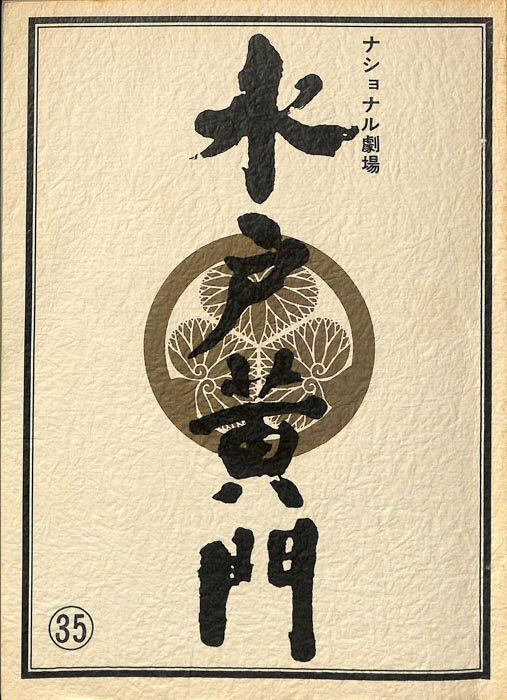 ナショナル劇場
水戸黄門
㉟